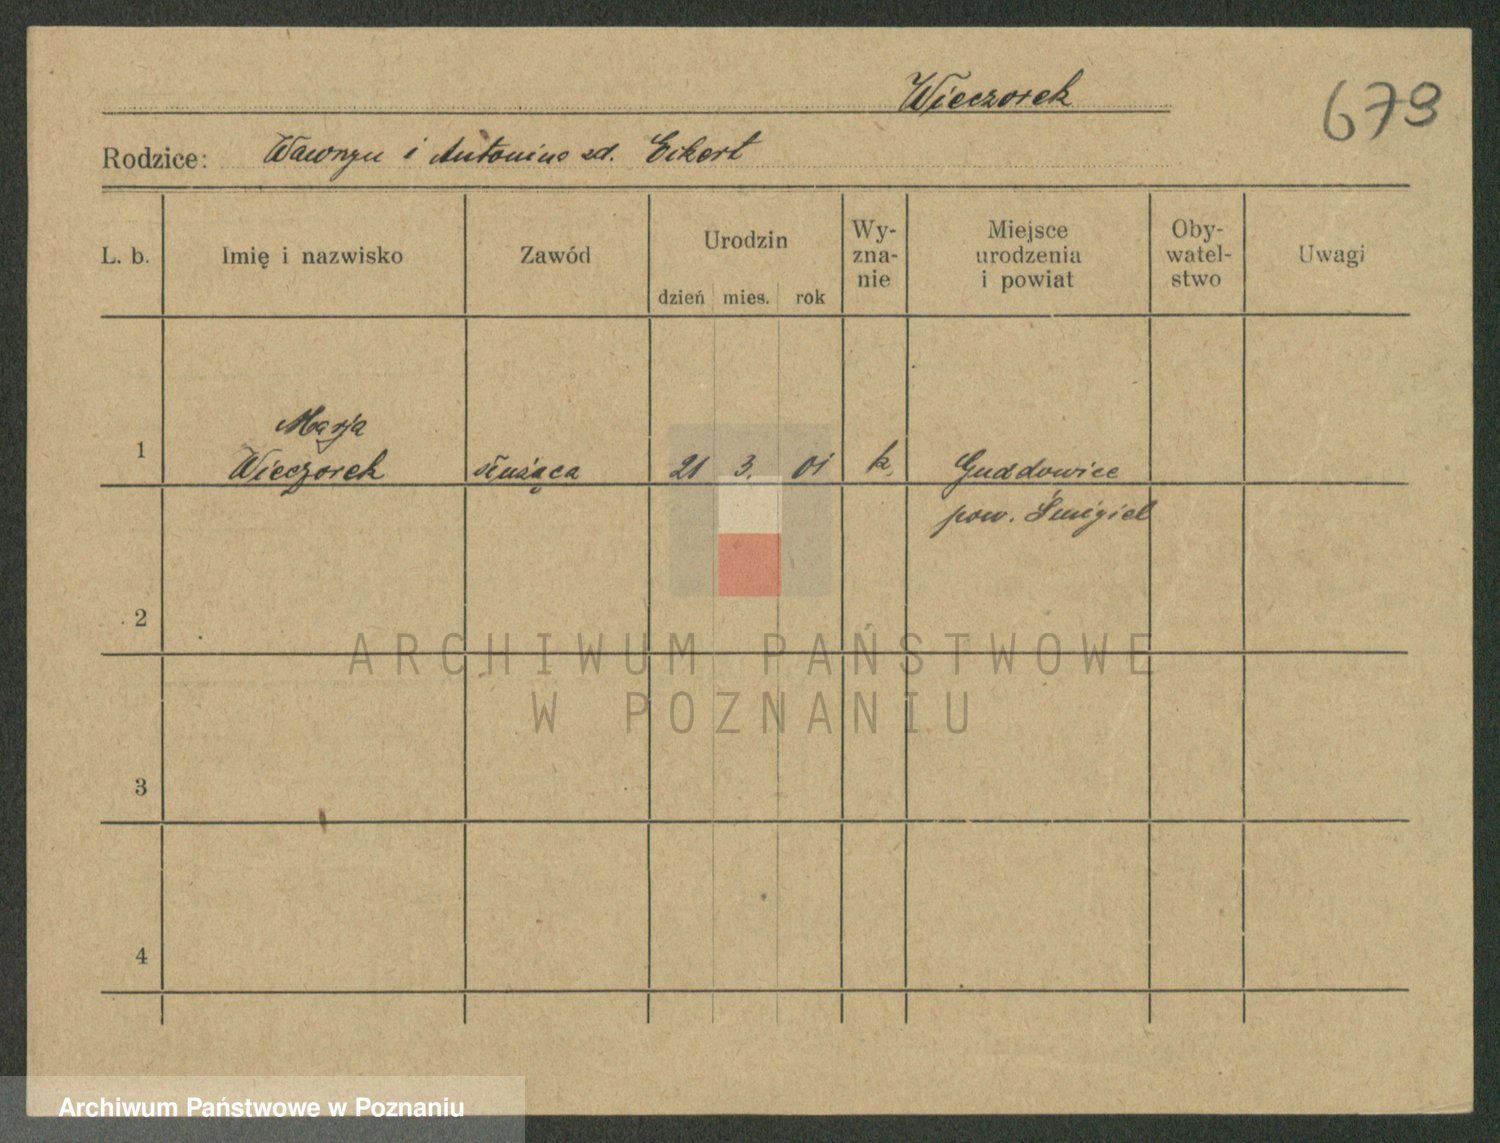 Wieczorek
679
Rodzice: Wawrzyn i Antonina zd. Eckert
L. b.
Imię i nazwisko
Zawód
Urodzin
dzień mies. rok
Wy-
zna-
nie
Miejsce
urodzenia
i powiat
Oby-
watel-
stwo
Uwagi
1
Marja
Wieczorek
służąca
21 3. 01
k.
pow. Śmigiel
2
3
4
ARCHIWUM PAŃSTWOWE
W POZNANIU
Archiwum Państwowe w Poznaniu